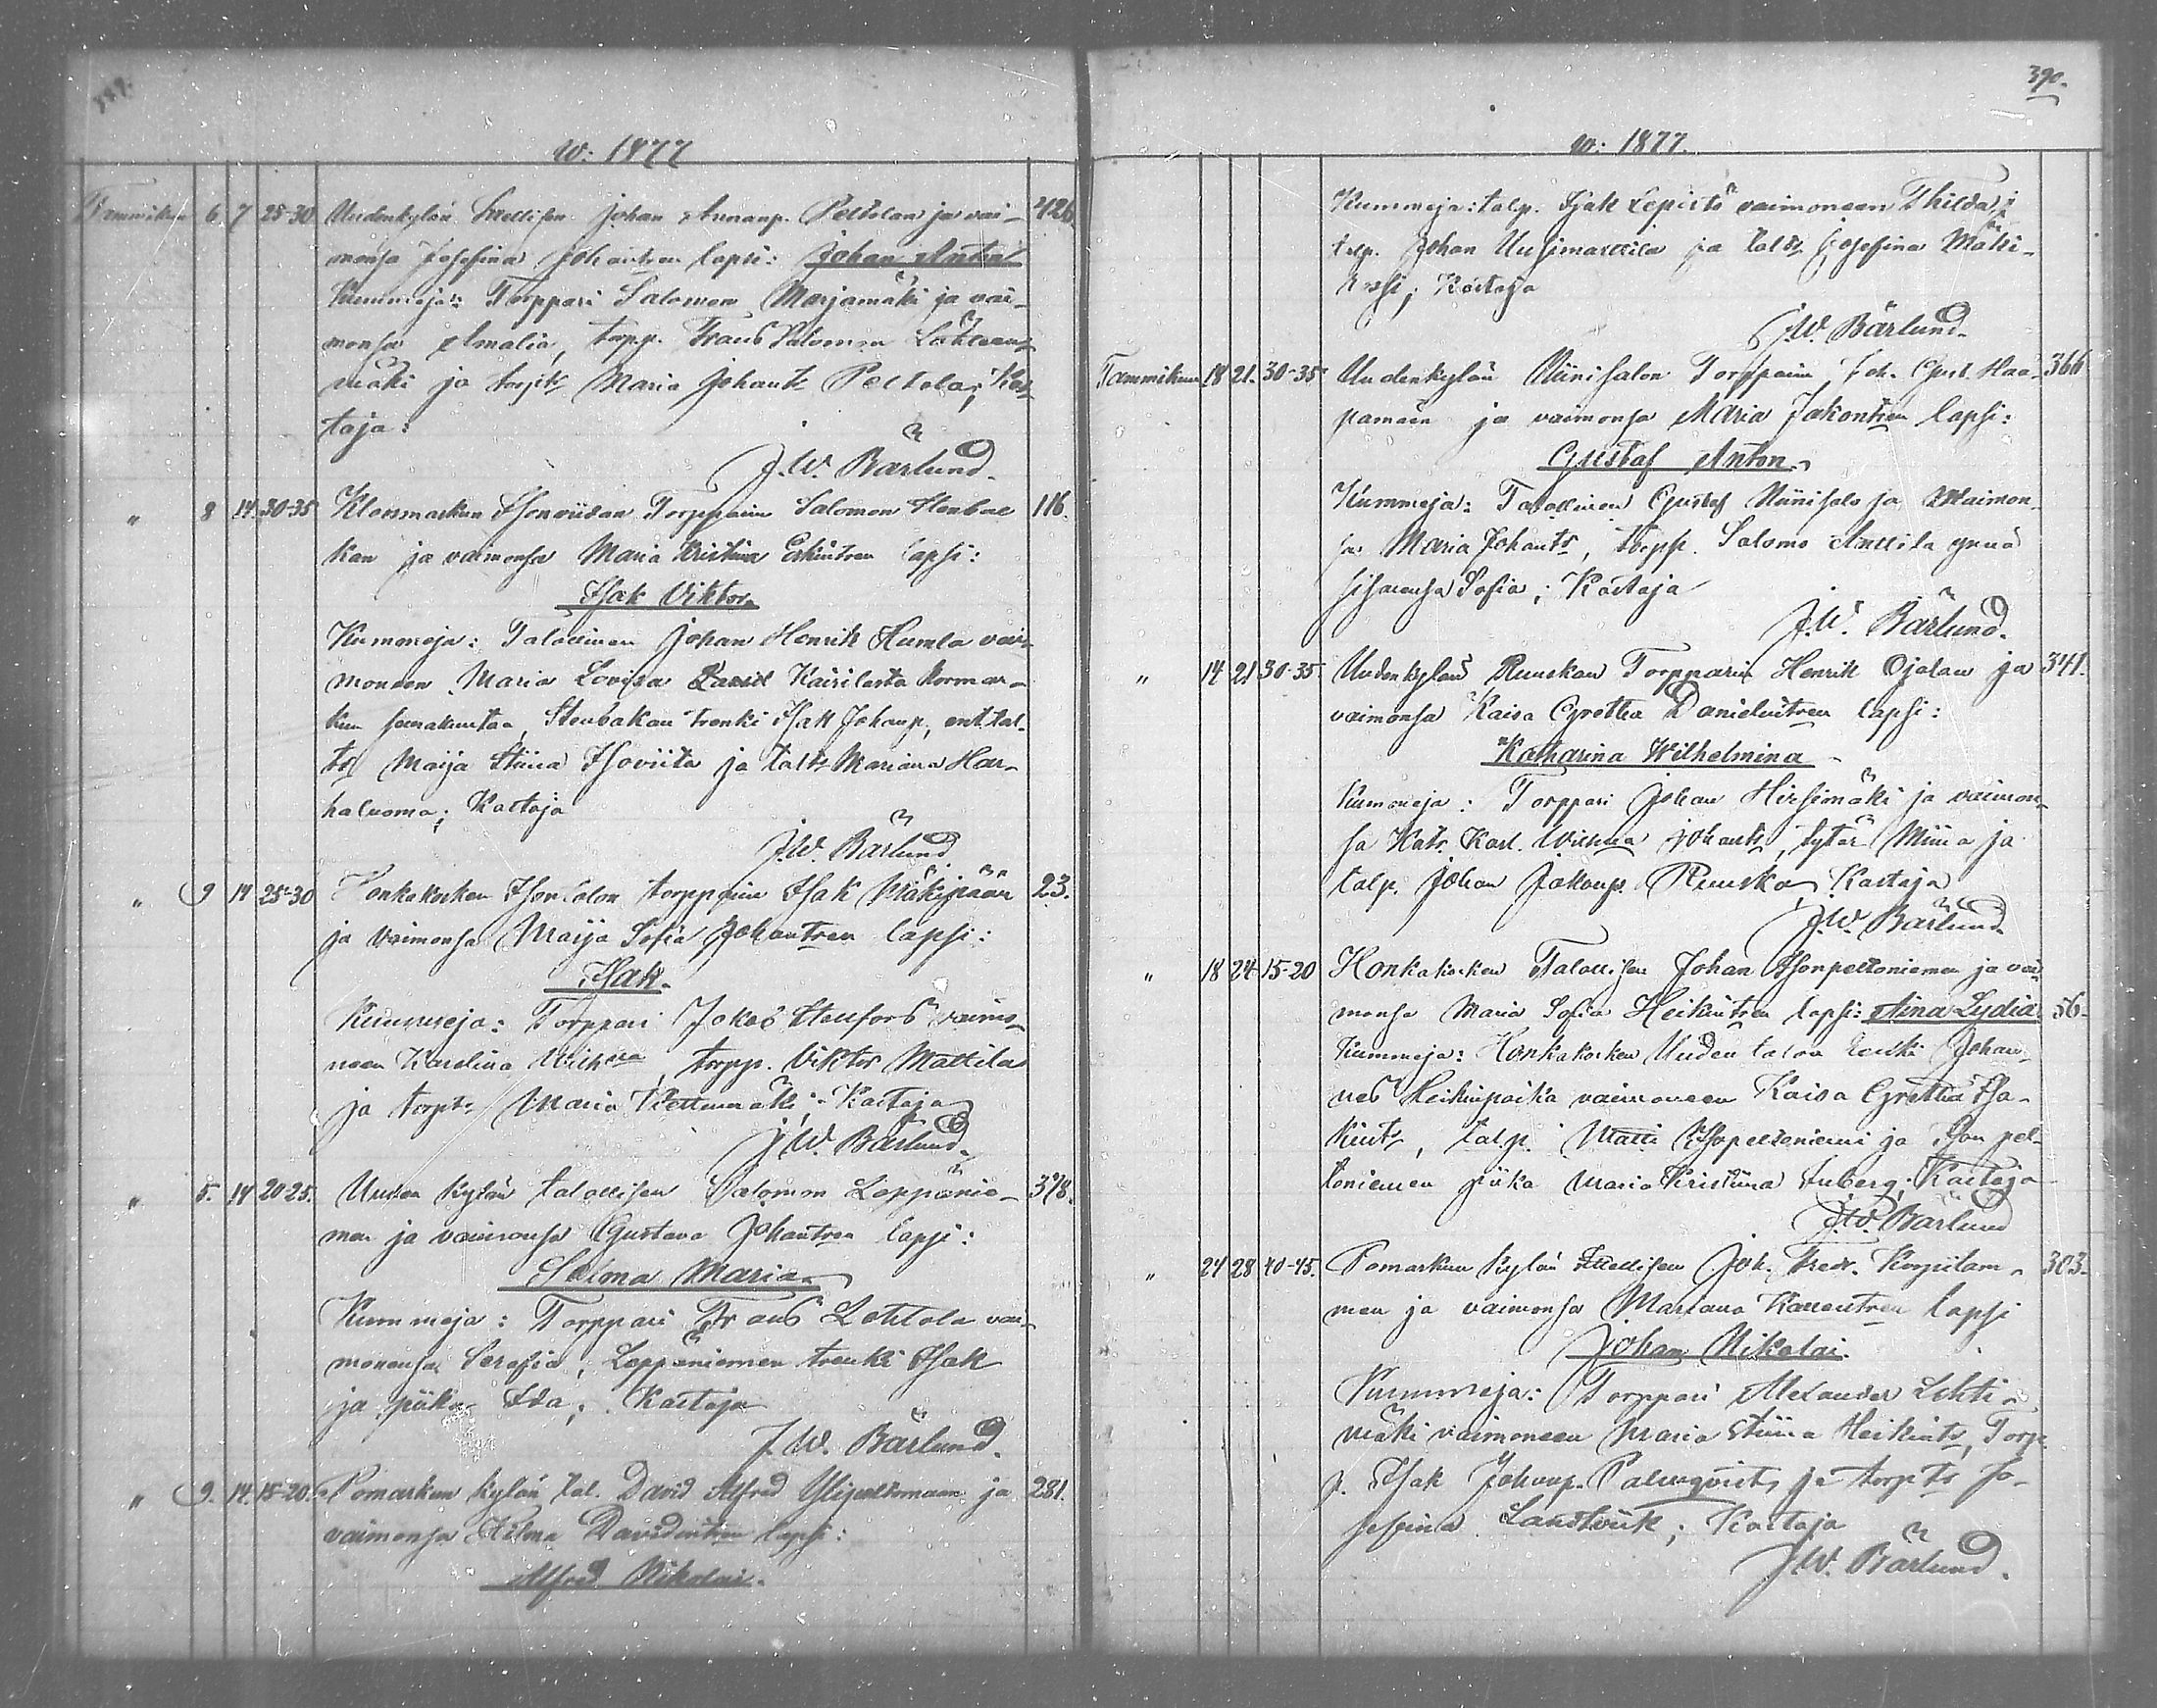 389.
w: 1877
Tammikuu 6. 7 25-30 Uudenkylän Itsellisen Johan Annanp. Peltolan ja vai- 426
monsa Josefina Johantren lapsi: Johan Antral
Kummeja: Torppari Salomon Marjamäki ja vai-
monsa Amalia, torpp. Frans Salomon Lähteen-
mäki ja torptr Maria Johantr Peltola; Kas-
taja:
J. W. Bärlund.
" 8 14 30-35 Klonmarkun Isonviidan Torpparin Salomon Stenbac 116.
kan ja vaimonsa Maria Kristina Erkintren lapsi:
Isak Viktor.
Kummeja: Talollinen Johan Henrik Humla vai-
moneen Maria Lovisa Kairilasta Normar-
kun seurakuntaa, Stenbakan trenki Isak Johanp., ent. tal.
tr Maija Stiina Isoviita ja taltr Mariana Har-
haluoma; Kastaja
J. W. Bärlund
" 9 14 25-30 Honkakosken Isontalon torpparin Isak Mäkipään 23.
ja vaimonsa Maija Sofia Johantren lapsi:
Isak.
Kummeja: Torppari Jakob Stenfors vaimo-
neen Karolina Wilhna, torpp. Viktor Mattila
ja torptr Maria Kettumäki; Kastaja
J. W. Bärlund.
" 5. 14 20-25. Uuden kylän talollisen Salomon Leppänie- 378.
men ja vaimonsa Gustava Johantren lapsi:
Selma Maria.
Kummeja: Torppari Frans Lehtola vai-
monensa Serafia, Leppäniemen trenki Isak
ja piika Ida; Kastaja
J. W. Bärlund.
" 9. 14. 15-20. Pomarkun kylän tal. David Alfred Ylipeltomaan ja 281.
vaimonsa Hilma Davidintren lapsi:
Alfred Nikolai.
390.
w: 1877.
Kummeja: talp. Isak Lepistö vaimoneen Thilda;
talp. Johan Uusimarttila ja taltr Josefina Mäki-
; Kastaja
J. W. Bärlund.
Tammikuu 18 21. 30-35 Uudenkylän Niinisalon Torpparin Joh. Gust. Haa- 366
pamäen ja vaimonsa Maria Jakontren lapsi:
Gustaf Anton.
Kummeja: Talollinen Gustaf Niinisalo ja Vaimon
sa Maria Johantr, torpp. Salomo Anttila ynnä
sisarensa Sofia; Kastaja
J. W. Bärlund.
" 14 21 30-35. Uudenkylän Ruuskan Torpparin Henrik Ojalan ja 341.
vaimonsa Kaisa Grettla Danielintren lapsi:
Katharina Wilhelmina
Kummeja: Torppari Johan Hirsimäki ja vaimon-
sa Katr. Karl. Wilhna Johantr, tytär Miina ja
talp. Johan Jakonp. Ruuska, Kastaja
J. W. Bärlund.
" 18 24 15-20 Honkakosken Talollisen Johan Isonpeltoniemen ja vai-
monsa Maria Sofia Heikintren lapsi: Aina Lydia 56.
Kummeja: Honkakosken Uuden talon Johan-
nes Heikinpoika vaimoneen Kaisa Grettla Isa-
kintr, talp. Matti Isopeltoniemi ja Ison pel-
toniemen piika Maria Kristiina; Kastaja
J. W. Bärlund
" 24 28 40-45. Pomarkun kylän Itsellisen Joh. Fredr. Korpilam- 303.
men ja vaimonsa Mariana Kallentren lapsi
Johan Nikolai.
Kummeja: Torppari Alexander Lehti-
mäki vaimoneen Maria Stiina Heikintr, Torp.
p. Isak Johanp. Palmqvist, ja torptr Jo-
sefina Landtvik; Kastaja
J. W. Bärlund.